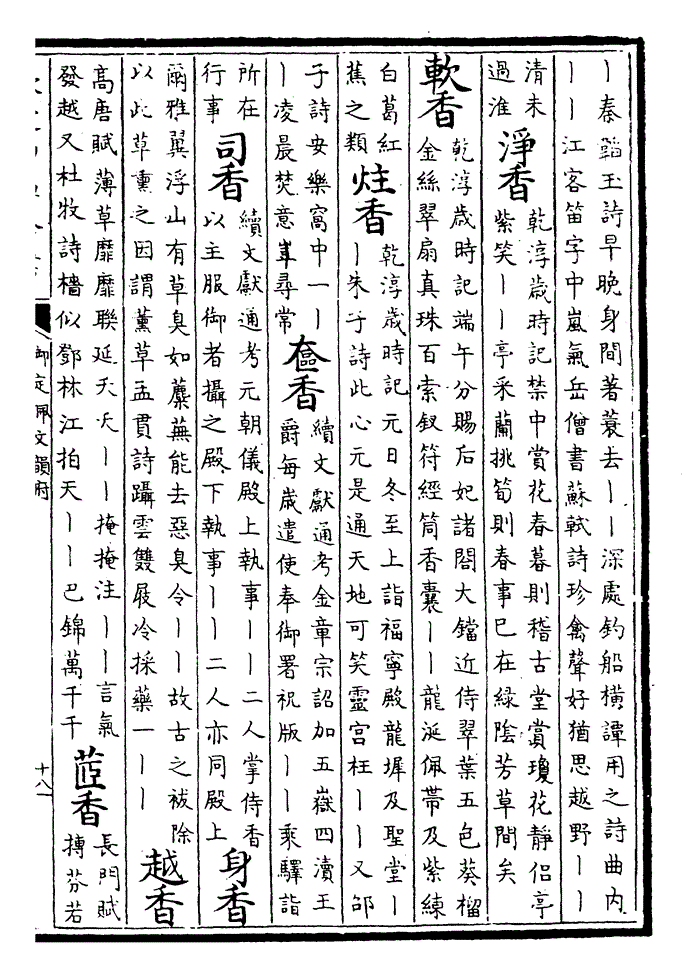 丨秦韜玉詩早晚身間著蓑去丨丨深處釣船橫譚用之詩曲內
丨丨江客笛字中嵐氣岳僧書蘇軾詩珍禽聲好猶思越野丨丨
清未
過淮
淨香
乾淳歲時記禁中賞花春暮則稽古堂賞瓊花靜侶亭
紫笑丨丨亭采蘭挑筍則春事已在綠陰芳草間矣
軟香
乾淳歲時記端午分賜后妃諸閣大鐺近侍翠葉五色葵榴
金絲翠扇真珠百索釵符經筒香囊丨丨龍涎佩帶及紫練
白葛紅
蕉之類
炷香
乾淳歲時記元日冬至上詣福寧殿龍墀及聖堂丨
丨朱子詩此心元是通天地可笑靈宮枉丨丨又邵
子詩安樂窩中一丨
丨凌晨焚意豈尋常
奩香
續文獻通考金章宗詔加五嶽四瀆王
爵每歲遣使奉御署祝版丨丨乘驛詣
所在
行事
司香
續文獻通考元朝儀殿上執事丨丨二人掌侍香
以主服御者攝之殿下執事丨丨二人亦同殿上
身香
爾雅翼浮山有草臭如蘼蕪能去惡臭令丨丨故古之祓除
以此草熏之因謂薰草孟貫詩躡雲雙屐冷採藥一丨丨
越香
高唐賦薄草靡靡聯延夭夭丨丨掩掩注丨丨言氣
發越又杜牧詩檣似鄧林江拍天丨丨巴錦萬千千
茝香
長門賦
摶芬若
御定佩文韻府
十八